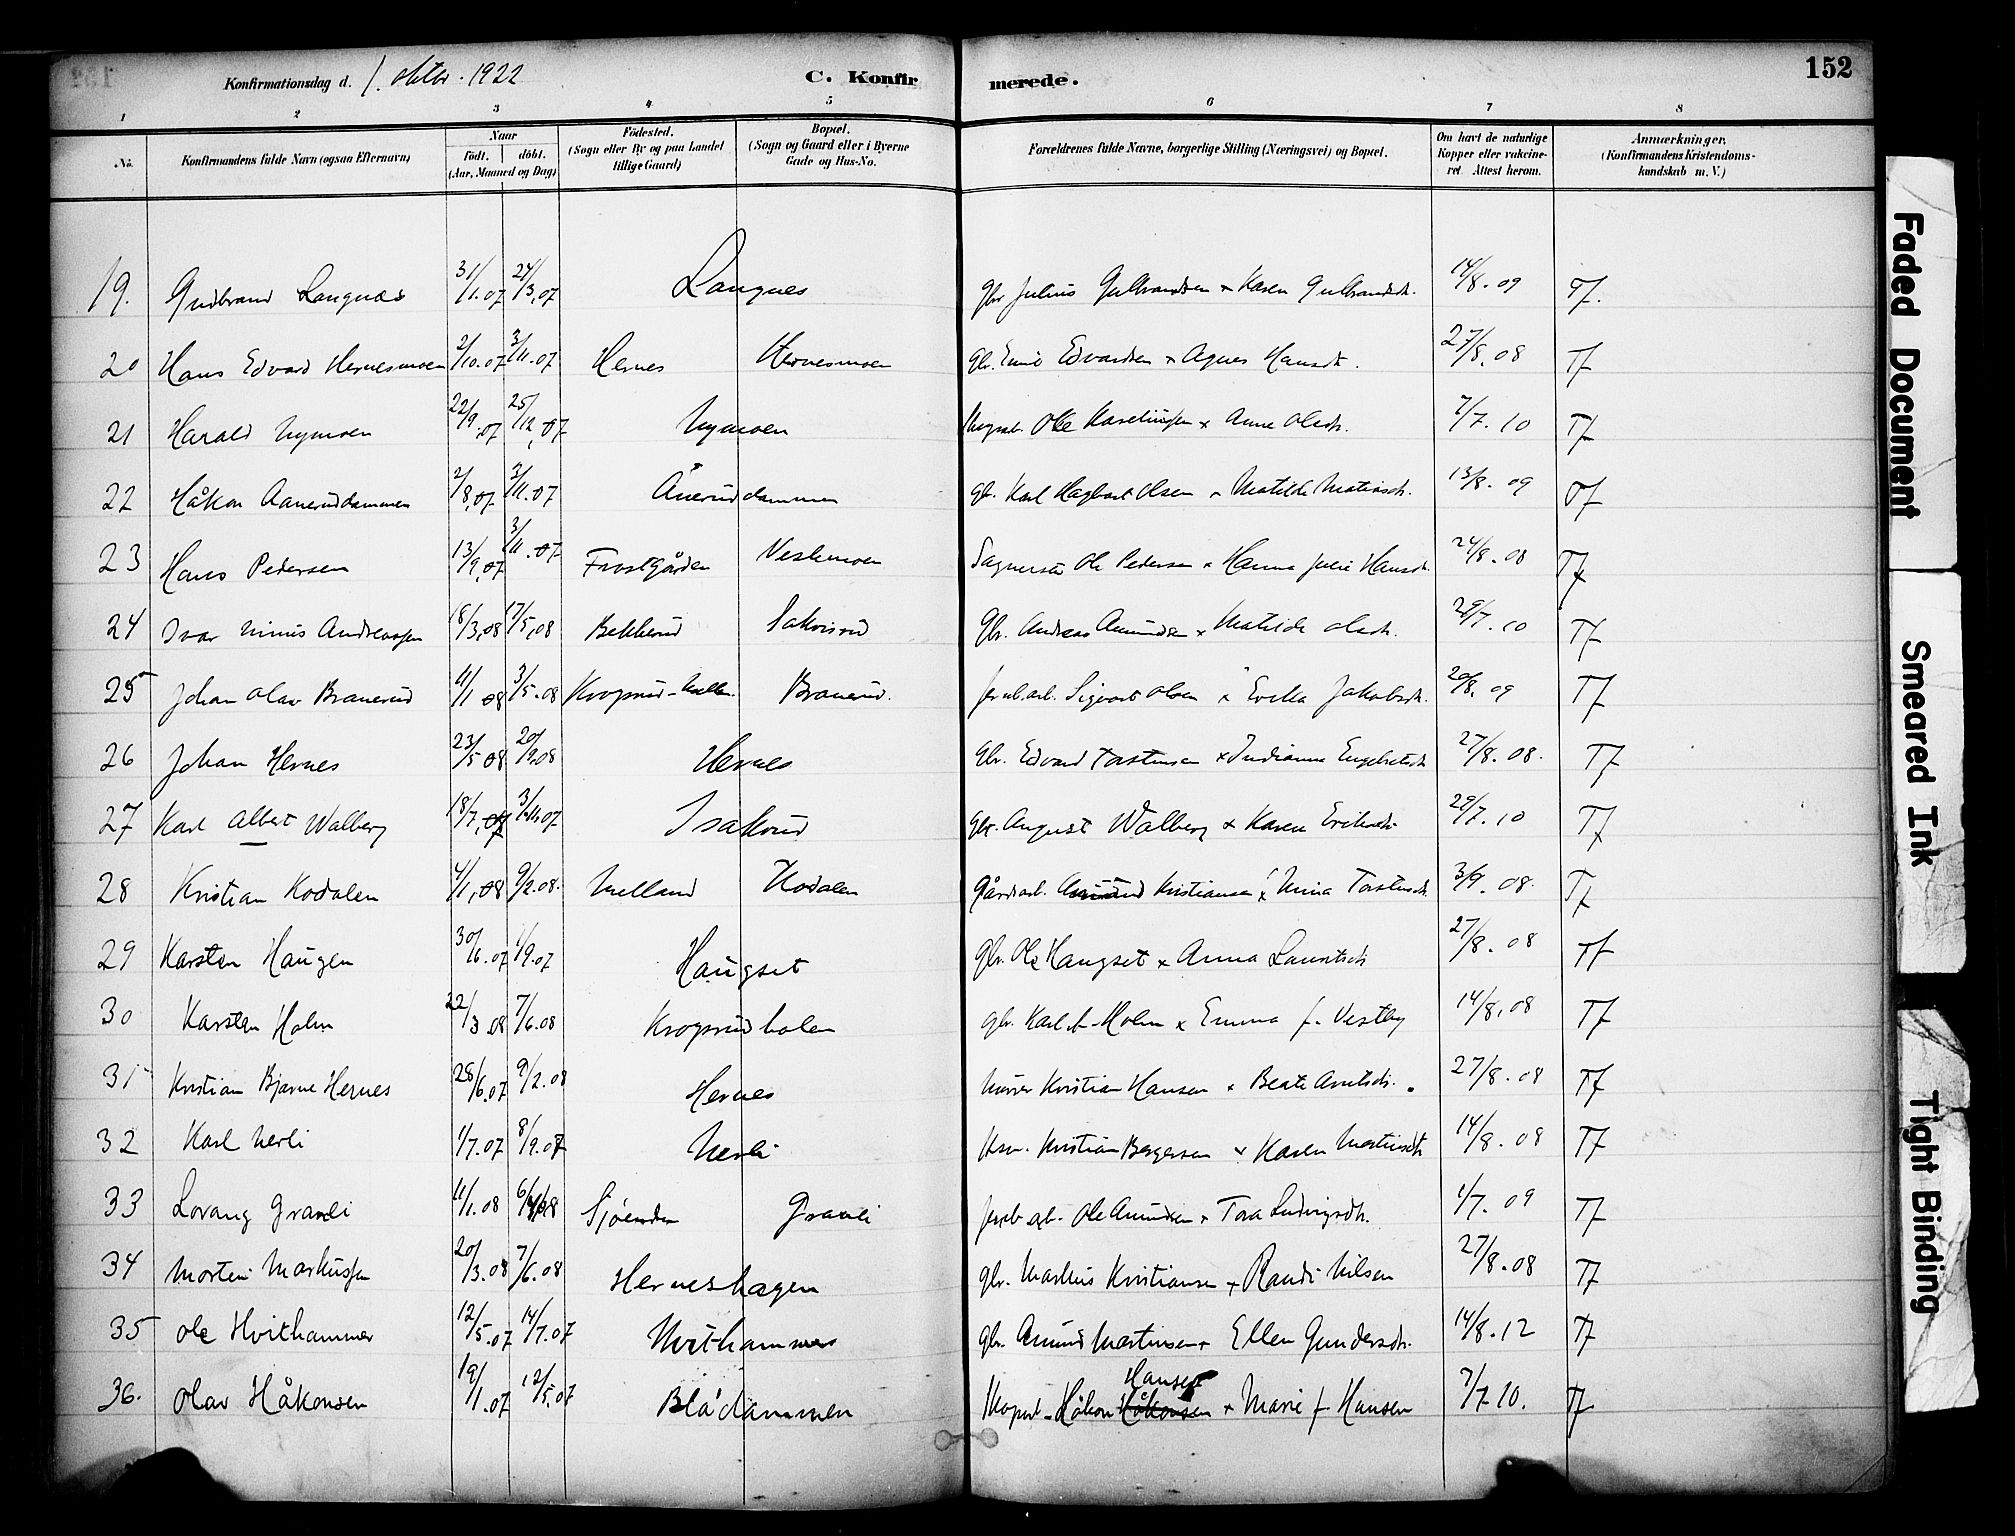 Konfirmationsdag d. 1. oktbr. 1922 C. Konfirmerede. 152
1 2 3 4 5 6 7 8
No. Konfirmandens fulde Navn (ogsaa Efternavn) Naar födt. döbt. (Aar, Maaned og Dag) Födested. (Sogn eller By og paa Landet tillige Gaard) Bopæl. (Sogn og Gaard eller i Byerne Gade og Hus-No. Forældrenes fulde Navne, borgerlige Stilling (Næringsvei) og Bopæl. Om havt de naturlige Kopper eller vakcineret. Attest herom. Anmærkninger, (Konfirmandens Kristendomskundskab m. V.)
19. Gudbrand Langnæs 31/1.07 24/3.07 Langnes Gbr Julius Gulbrandsen x Karen Gulbrandsdt. 14/8.09 Tf.
20 Hans Edvard Hernesmoen 2/10.07 3/11.07 Hernes Hernesmoen Gbr. Emil Edvardsen x Agnes Hansdt. 27/8.08 Tf
21 Harald Nymoen 22/9.07 25/12.07 Nymoen Ole x Anne Olsdt. 7/7.10 Tf
22 Håkon Aaneruddammen 2/8.07 3/11.07 Åneruddammen gbr. Karl Hagbart Olsen x Matilde 13/8.09 Tf
23 Hans Pedersen 13/9.07 3/11.07 Frostgården Veslemoen Ole Pedersen x Hanna Julie Hansdt. 24/8.08 Tf
24 Ivar Andreassen 18/3.08 17/5.08 Bekkerud Isakrud Gbr. Andreas Amundsen x Matilde Olsdt. 29/7.10 Tf
25 Johan Olav Branerud 11/1 08 3/5.08 Branerud. Jernb.arb. Sigvart Olsen x Jakobsdt. 20/8.09 Tf
26 Johan Hernes 23/5 08 20/9.08 Hernes Gbr. Edvard Torstensen x Indianna Engebretsdt. 27/8.08. Tf
27 Karl Albert Walberg 18/7.07 3/11.07 Isakrud Gbr. August Walberg x Karen Eriksdt. 29/7.10 Tf
28 Kristian Kodalen 4/1.08 9/2.08. Melland Kodalen Gårdsarb. Amund Kristiansen x Mina Torstensdt. 3/9.08. Tf
29 Karsten Haugen 30/6.07 1/9.07 Haugset Gbr. Ole Haugset x Anna Lauritsdt. 27/8.08 Tf
30 Karsten Holm 22/3.08 7/6.08 Kroprudholen gbr. Karl A. Holm x Emma f. Vestby 14/8.08 Tf
31 Kristian Bjarne Hernes 28/6.07 9/2.08 Hernes Murer Kristian Hansen x Beate Arntsdt. 27/8.08 Tf
32 Karl Nerli 1/7.07 8/9.07 Nerli Kristian Bergersen x Karen Martinsdt 14/8.08 Tf
33 Lorang Granli 11/1.08 Sjøenden Granli Ole Amundsen x Tora Ludvigsdt. 1/7.09 Tf
34 Morten Markussen 20/3.08 7/6.08 Herneshagen gbr. Markus Kristiansen x Randi Nilsen 27/8.08 Tf
35 Ole Hvithammer 12/5.07 14/7.07 Hvithammer gbr. Amund Martinsen x Ellen Gundersdt. 14/8.12 Tf
36. Olav Håkonsen 19/1.07 12/5.07 Blådammen Håkon Håkonsen Hansen x Marie f Hansen 7/7 10. Tf
Faded Document
Smeared Ink
Tight Binding